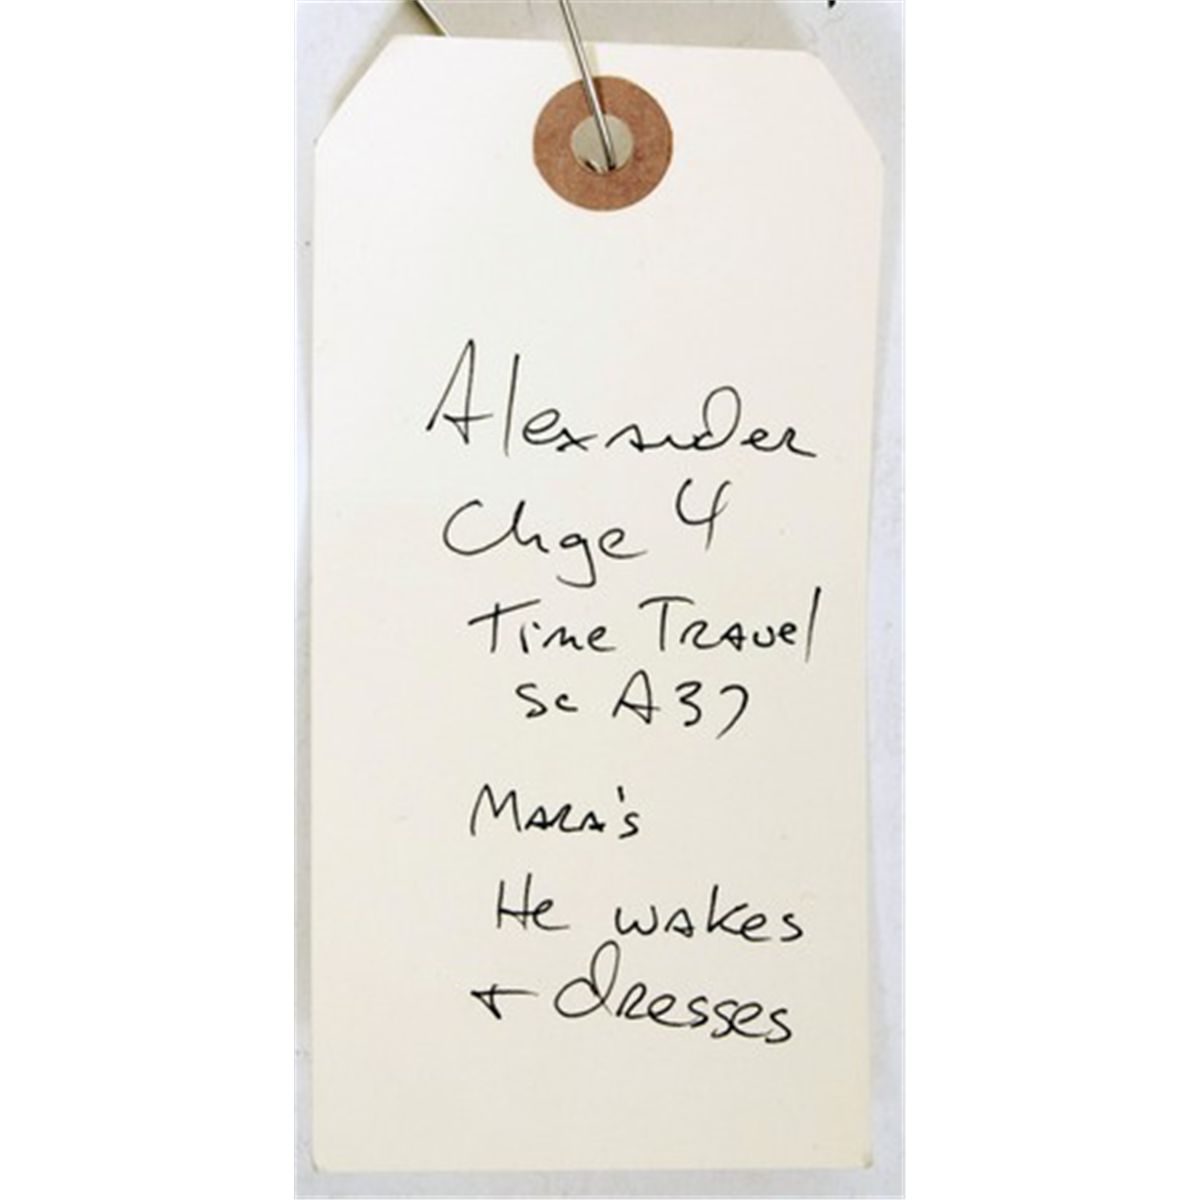 Alexander
Chge 4
Time Travel
Sc A37
Mara's
He wakes
+ dresses